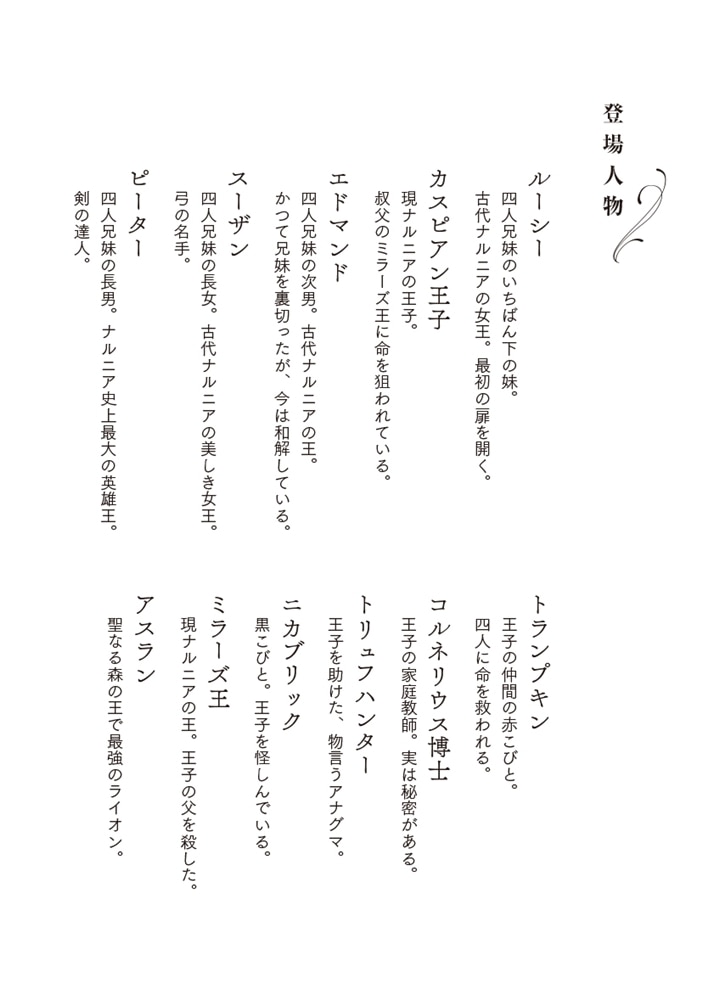 登場人物
ルーシー
四人兄妹のいちばん下の妹。
古代ナルニアの女王。最初の扉を開く。
カスピアン王子
現ナルニアの王子。
叔父のミラーズ王に命を狙われている。
エドマンド
四人兄妹の次男。古代ナルニアの王。
かつて兄妹を裏切ったが、今は和解している。
スーザン
四人兄妹の長女。古代ナルニアの美しき女王。
弓の名手。
ピーター
四人兄妹の長男。ナルニア史上最大の英雄王。
剣の達人。
トランプキン
王子の仲間の赤こびと。
四人に命を救われる。
コルネリウス博士
王子の家庭教師。実は秘密がある。
トリュフハンター
王子を助けた、物言うアナグマ。
ニカブリック
黒こびと。王子を怪しんでいる。
ミラーズ王
現ナルニアの王。王子の父を殺した。
アスラン
聖なる森の王で最強のライオン。